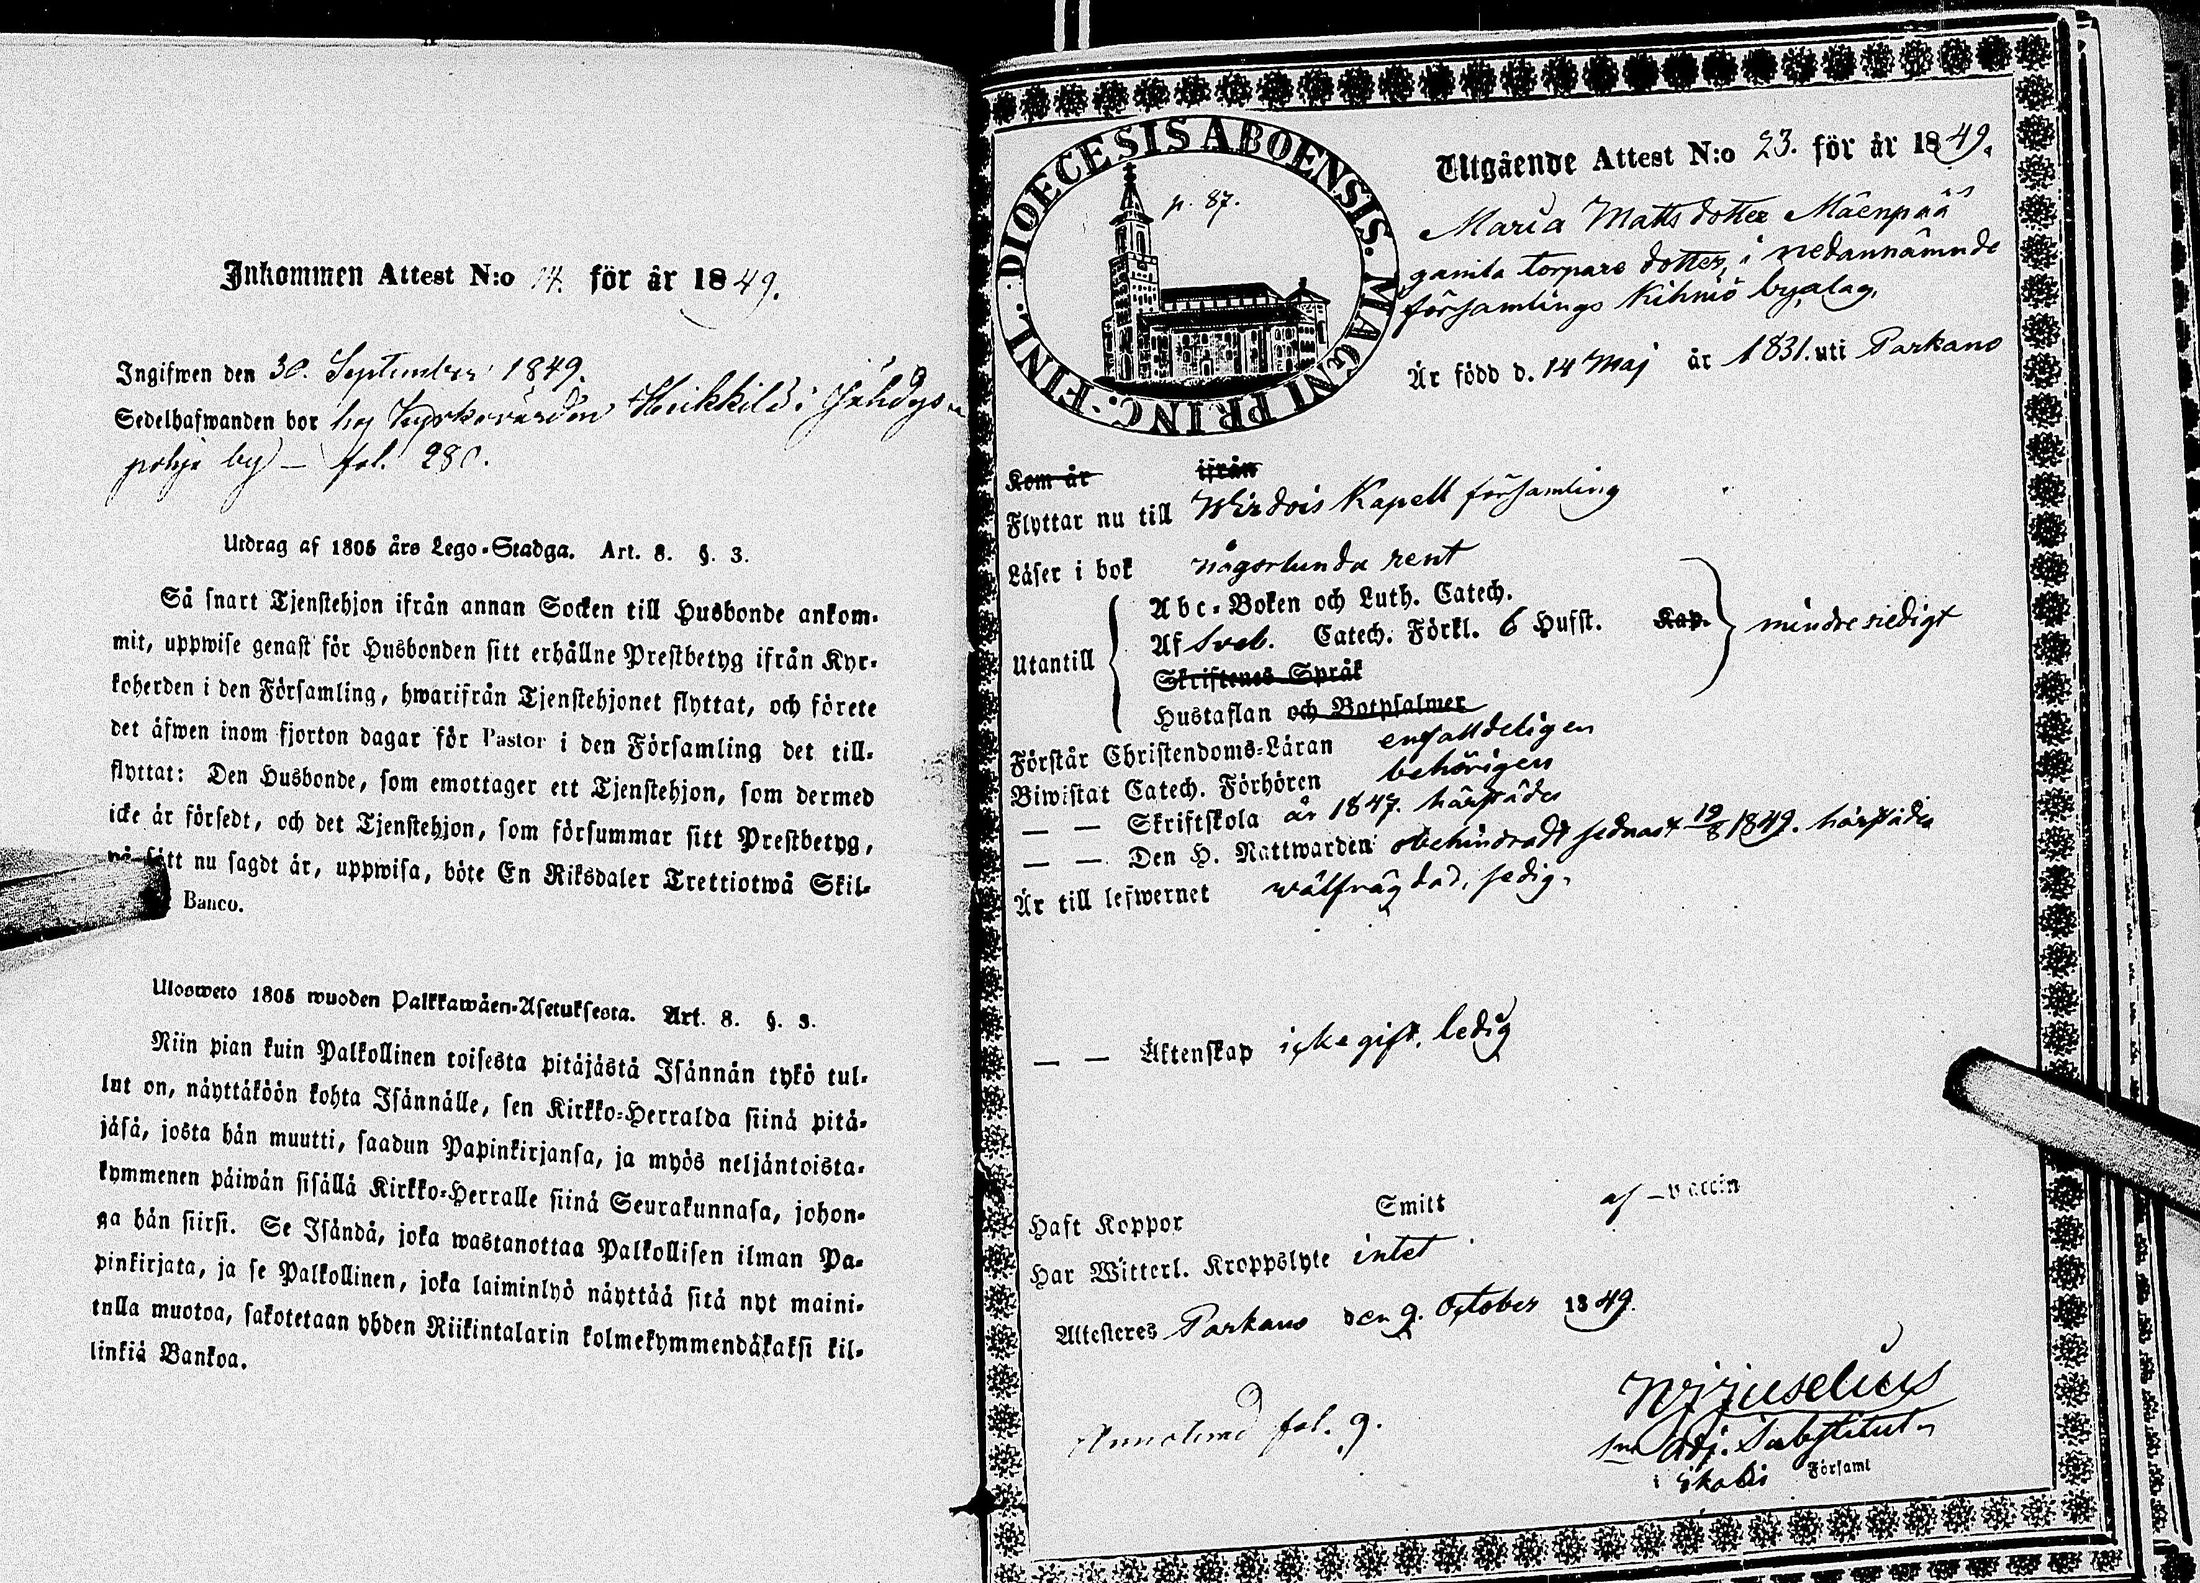 Inkommen Attest N:o 14. för år 1849.
Ingifwen den 30. September 1849.
Sedelhafwanden bor hos Kyrkovärden Heikkilä i Jähdys-
pohja by – fol. 280.
Utdrag af 1805 års Lego-Stadga. Art. 8. §. 3.
Så snart Tjenstehjon ifrån annan Socken till Husbonde ankom-
mit, uppwise genast för Husbonden sitt erhållne Prestbetyg ifrån Kyr-
koherden i den Församling, hwarifrån Tjenstehjonet flyttat, och förete
det äfwen inom fjorton dagar för Pastor i den Församling det till-
flyttat: Den Husbonde, som emottager ett Tjenstehjon, som dermed
icke är försedt, och det Tjenstehjon, som försummar sitt Prestbetyg,
på sätt nu sagdt är, uppwisa, böte En Riksdaler Trettiotwå Skil-
Banco.
Ulosweto 1805 wuoden Palkkawäen-Asetuksesta. Art. 8. §. 3.
Niin pian kuin Palkollinen toisesta pitäjästä Isännän tykö tul-
lut on, näyttäköön kohta Isännälle, sen Kirkko-Herralda siinä pitä-
jäsä, josta hän muutti, saadun Papinkirjansa, ja myös neljäntoista-
kymmenen päiwän sisällä Kirkko-Herralle siinä Seurakunnasa, johon-
ga hän siirsi. Se Isändä, joka wastanottaa Palkollisen ilman Pa-
pinkirjata, ja se Palkollinen, joka laiminlyö näyttää sitä nyt maini-
tulla muotoa, sakotetaan yhden Riikintalarin kolmekymmendäkaksi kil-
linkiä Bankoa.
DIOECESIS ABOENSIS. MAGNI PRINC. FINL.
p. 87.
Utgående Attest N:o 23. för år 1849.
Maria Mattsdotter Mäenpää
gamla torpare dotter, i nedannämnde
församlings Kihniö byalag.
Är född d. 14 Maj år 1831. uti Parkano
Kom år ifrån
Flyttar nu till Wirdois Kapell församling
Läser i bok någorlunda rent
Abc-Boken och Luth. Catech.
Af Sveb. Catech. Förkl. 6 Hufst. Kap.
Utantill
mindre redigt
Skriftenes Språk
Hustaflan och Botpsalmer
Förstår Christendoms-Läran enfalldeligen
Biwistat Catech. Förhören behörigen
— — Skriftskola år 1847. härstädes
— — Den H. Nattwarden obehindradt sednast 19/8 1849. härstädes
Är till lefwernet wälfrägdad, sedig.
— — Äktenskap icke gift, ledig
Haft Koppor Smitt af – vaccin
Har Witterl. Kroppslyte intet
Attesteres Parkano den 9. October 1849.
Annoterad fol. 9.
Juselius
adj. Substitut
i Ikalis Församl